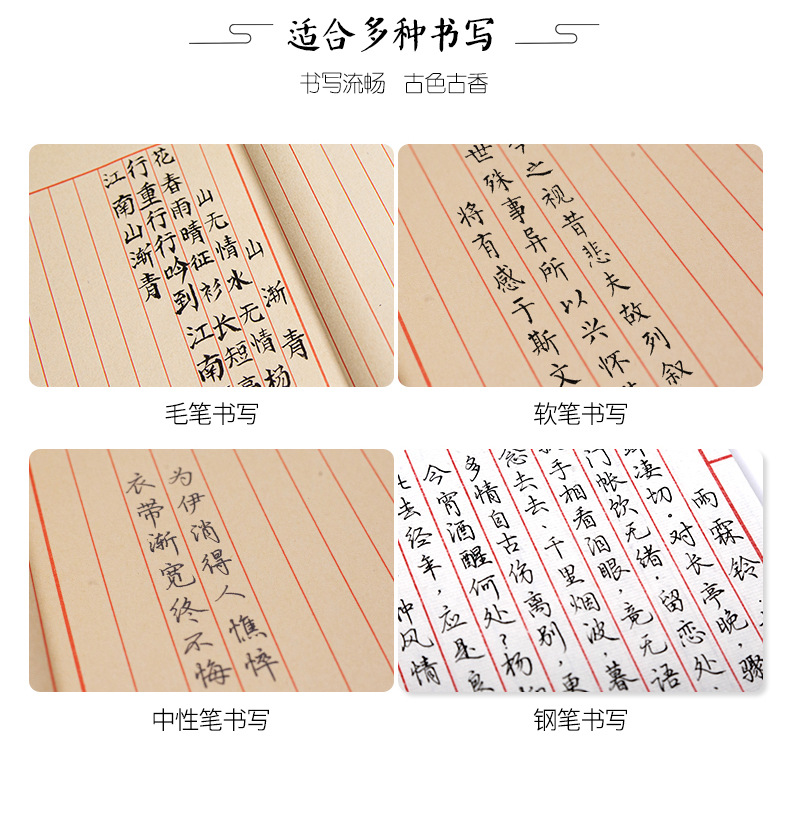 适合多种书写
书写流畅 古色古香
山渐青
山无情水无情杨
花春雨晴征衫长短亭
行重行行吟到江南
江南山渐青
毛笔书写
今之视昔悲夫故列叙
世殊事异所以兴怀
将有感于斯文
软笔书写
为伊消得人憔悴
衣带渐宽终不悔
中性笔书写
雨霖铃
凄切·对长亭晚,骤
门帐饮无绪·留恋处、
手相看泪眼,竟无语
念去去、千里烟波,暮
多情自古伤离别,更
今宵酒醒何处?杨柳
去经年,应是良
种风情
钢笔书写